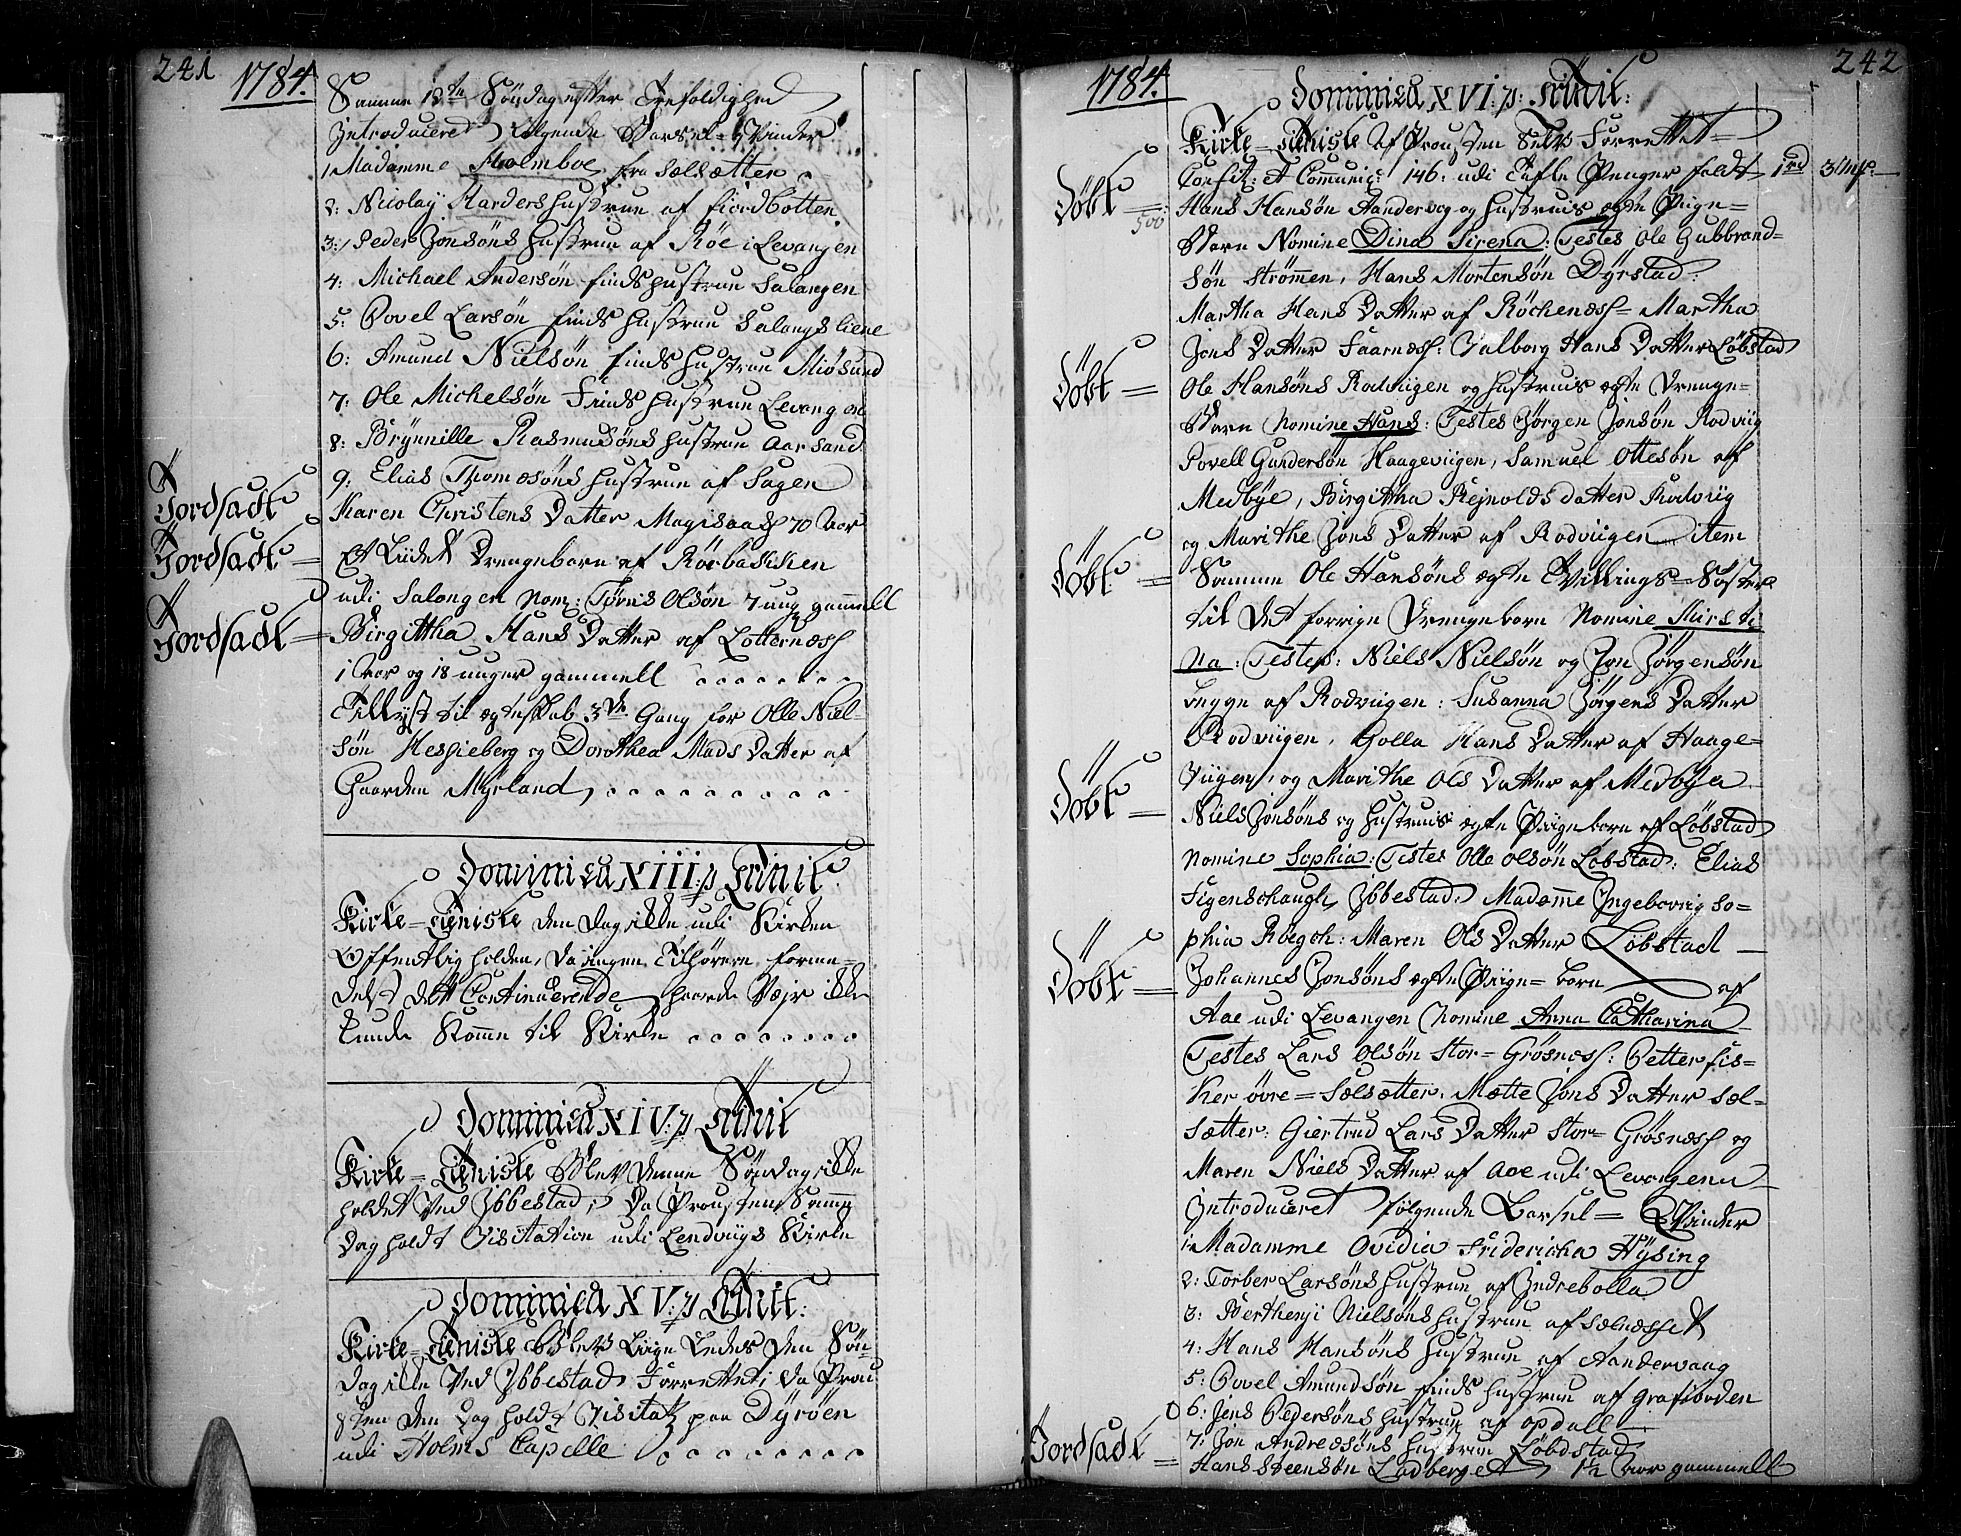 241
1784.
Samme 12te Søndag efter Trefoldighed
Introduceret følgende Barsel-Qvinder
1 Madamme Holmboe fra Sælsætter
2: Nicolay Harders Hustrue af Fiordbotten
3: Peder Jonsøns Hustrue af Røe i Levangen
4: Michael Andersøn Finds Hustrue Salangen
5: Povel Larsøn Finds Hustrue Salangs liene
6: Amund Nielsøn Finds Hustrue Miøsund
7: Ole Michelsøn Finds Hustrue Levangen
8: Brynnille Rasmusøns Hustrue Aarsand
9: Elias Thomæsøns Hustrue af Sagen
Jordsadt Karen Christens Datter 70 Aar
Jordsadt = Et Lidet Drengebarn af Rørbakken
udi Salangen Nom: Tønis Olsøn 7 uug gammell
Jordsadt = Birgittha Hans Datter af Lotternæss
1 Aar og 18 uuger gammell
Tillyst til Egteskab 3de Gang for Olle Niel-
søn Hessieberg og Dorothea Mads Datter af
Gaarden Myrland
Dominica XIII: p Trinit
Kirke-Tieniste den Dag ikke udi Kirken
Offentlig holden, da ingen Tilhørere forme-
delst dett Continuerende haarde Vejr ikke
kunde komme til Kirke
Dominica XIV: p Trinit
Kirke-Tieniste Blev denne Søndag ikke
holdet ved Ibbestad, da Provsten Samme
Dag holdt Visitation udi Lendviigs Kirke
Dominica XV: p Trinit:
Kirke-Tieniste Blev Liige Ledes den Søn-
dag ikke ved Ibbestad Forrettet, da Prov-
sten den Dag holdt Visitatz paa Dyrøen
udi Holms Capelle
242
1784.
Dominica XVI: p: Trinit:
Kirke-Tieniste af Provsten Selv Forrettet
Confit: et Communic: 146: udi Tafle Penger faldt 1 rd 3 mk
Døbt = 500 Hans Hansøn Aandervog og Hustrues egte Piige-
Barn Nomine Dina Sirena: Testes Ole Gubbrand-
søn Strømmen, Hans Mortensøn Dyrstad:
Martha Hans Datter af Røchenæss- Martha
Jons Datter Faarnæss: Valborg Hans Datter Løbstad
Døbt = Ole Hansøns Rodviigen og Hustrues egte Drenge-
Barn Nomine Hans: Testes Jørgen Jonsøn Rodviig
Povell Gundersøn Haageviigen, Samuel Ottesøn af
Medbye, Birgittha Rejnolds datter Rodviig
og Marithe Jons Datter af Rodviigen item
Døbt = Samme Ole Hansøns egte Tvillings-Søster
til det forrige Drengebarn Nomine Kirsti-
na: Testes: Niels Nielsøn og Jon Jørgensøn
begge af Rodviigen: Susanna Jørgens Datter
Rodviigen, Golla Hans Datter af Haage-
viigen, og Marithe Ols Datter af Medbye
Døbt = Niels Jonsøns og Hustrues egte Piigebarn af Løbstad
Nomine Sophia: Testes Olle Olsøn Løbstad: Elias
Figenschaugh Ibbestad: Madame Ingeborrig So-
phia Røegch: Maren Ols Datter Løbstad
Døbt = Johannes Jonsøns egte Piige-barn af
Aae udi Levangen Nomine Anna Catharina
Testes Lars Olsøn Stor-Grøsnæss: Petter Fis-
ker øvre-Sælsætter, Mætte Jons Datter Sæl-
sætter: Giertrud Lars Datter Stor-Grøsnæss og
Maren Niels Datter af Aae udi Levangenn
Introduceret følgende Barsel-Qvinder
1: Madamme Ovidia Fridericha Hysing
2: Torber Larsøns Hustrue af Indrebolla
3: Berthenji Nielsøns Hustrue af Sælnæsset
4: Hans Hansøns Hustrue af Aandervaag
5: Povel Amundsøn Finds Hustrue af Grafiorden
6: Jens Pedersøns Hustrue af Opdall
7: Jon Andreæsøns Hustrue Løbdstad
Jordsadt = Hans Steensøn Ladberget 1½ Aar gammell